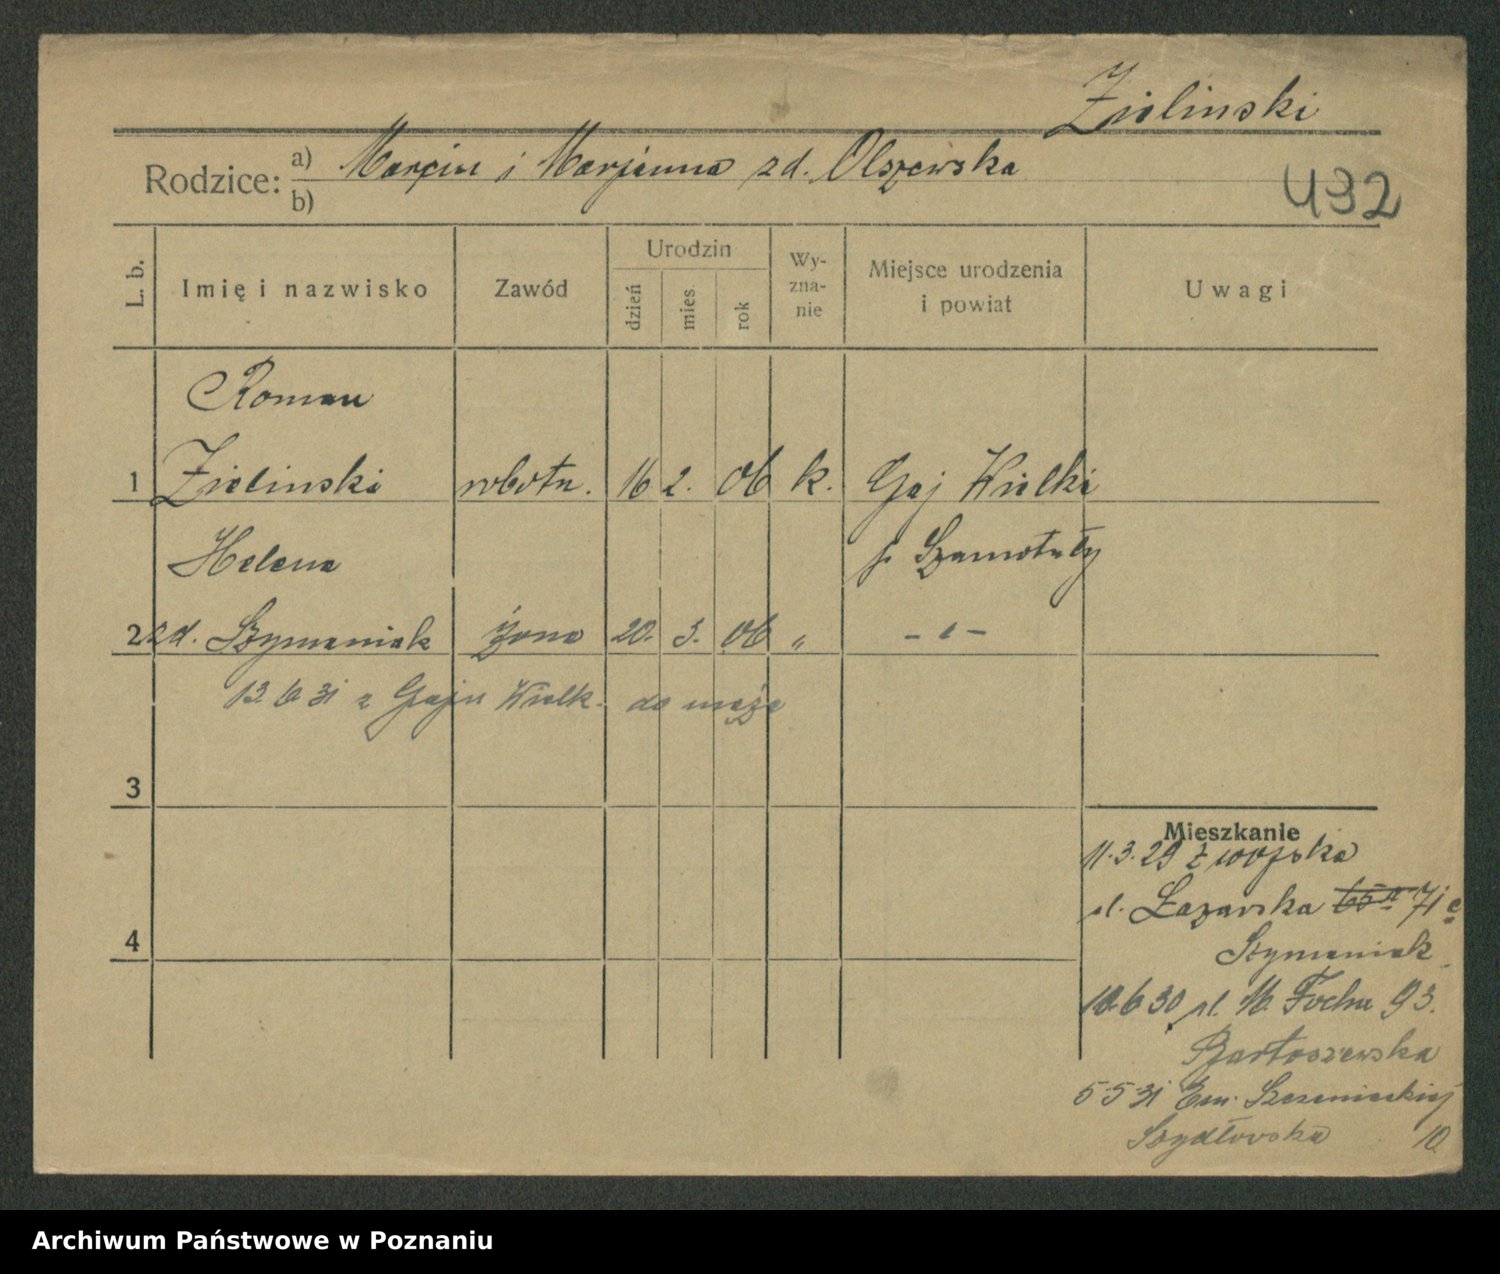 Zielinski
Rodzice: a) Marcin i Marjanna zd. Olszewska
b)
432
L. b. Imię i nazwisko Zawód Urodzin dzień mies. rok Wy-zna-nie Miejsce urodzenia i powiat Uwagi
Roman
1 Zielinski robotn. 16 2. 06 k. Gaj Wielki
Helena p. Szamotuły
2 zd. Szymaniak żona 20. 3. 06 „ - „ -
13.6.31 z Gaju Wielk. do męża
3
Mieszkanie
11.3.29 z wojska
ul. Łazarska 65a 71 c
4
Szymaniak
10.6.30 ul. M. Focha 93.
Bartoszewska
5.5.31 Em. Szczanieckiej
Szydłowska 10
Archiwum Państwowe w Poznaniu